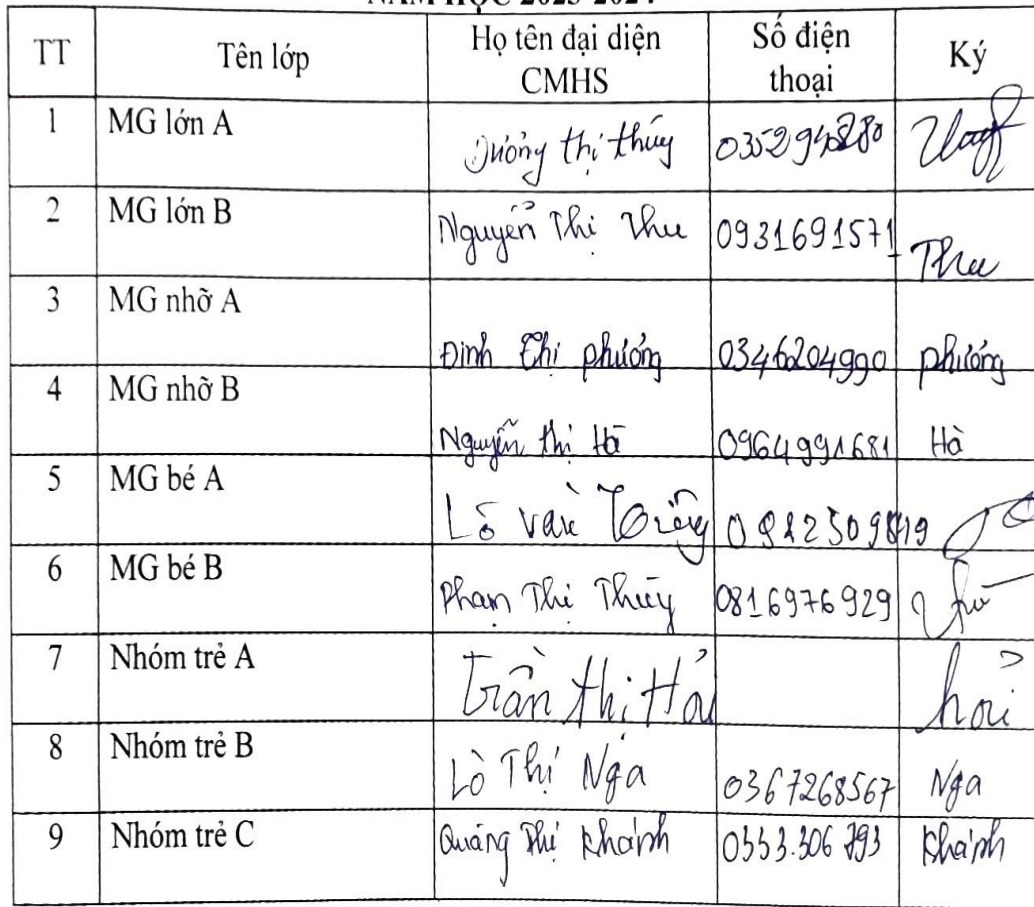 NĂM HỌC 2023-2024
TT Tên lớp Họ tên đại diện CMHS Số điện thoại Ký
1 MG lớn A Dương thị thúy
2 MG lớn B Nguyễn Thị Thu 0931691571 Thu
3 MG nhỡ A Đinh Thị Phương 0346204990 Phương
4 MG nhỡ B Nguyễn thị Hà 0964991681 Hà
5 MG bé A Lò văn
6 MG bé B Phạm Thị Thúy 0816976929
7 Nhóm trẻ A Trần thị
8 Nhóm trẻ B Lò Thị Nga 0367268567 Nga
9 Nhóm trẻ C Quàng Thị Khánh Khánh